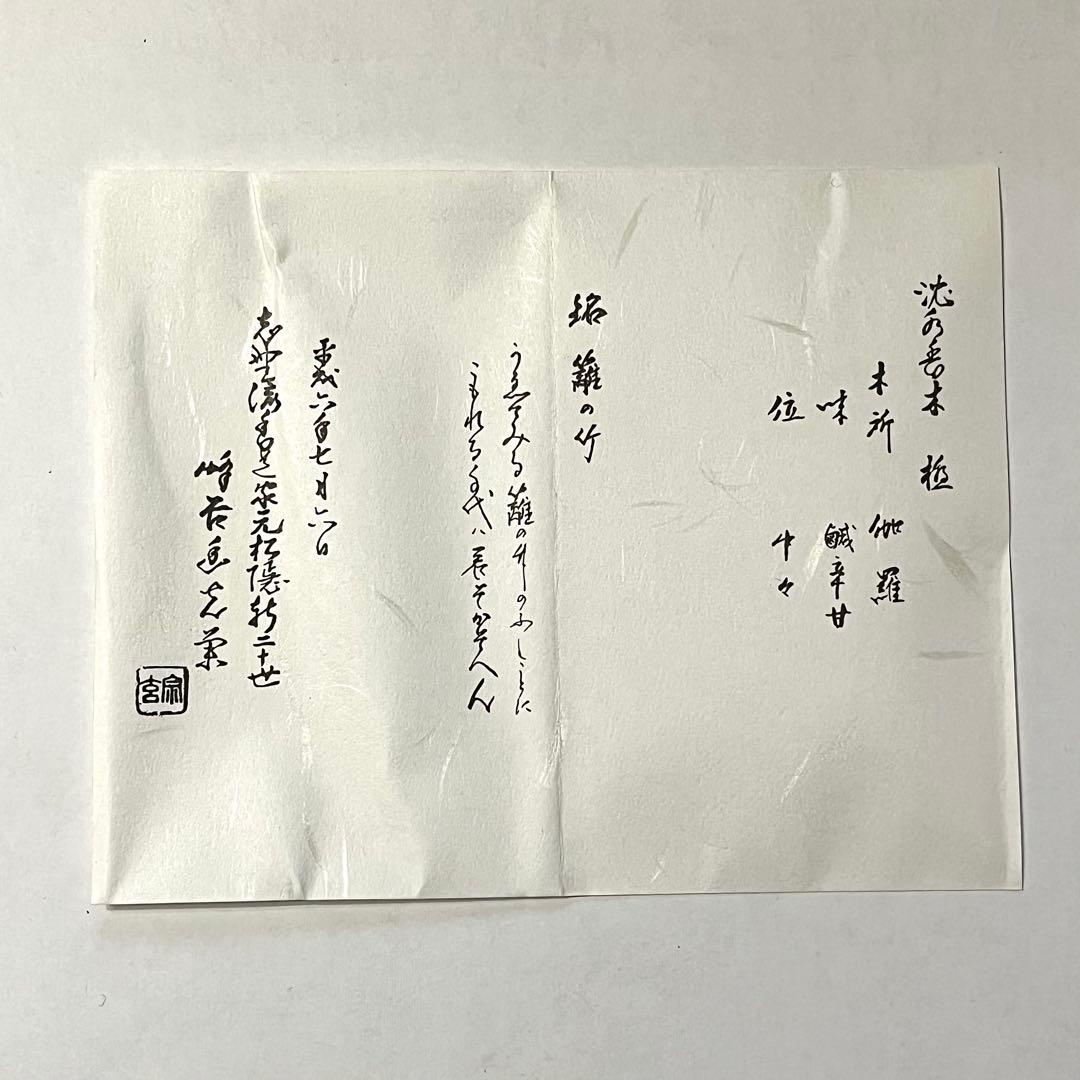 沈水香木 極
木所 伽羅
味 鹹辛甘
位 中々
銘 籬の竹
うゑてみる籬の竹のふしことに
こもれる千代ハ君そかそへん
平成六年七月六日
志野流香道家元松隠軒二十世
蜂谷幽光斎
宗玄